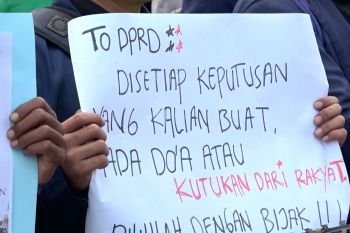 TO DPRD:
DISETIAP KEPUTUSAN
YANG KALIAN BUAT,
ADA DO'A ATAU
KUTUKAN DARI RAKYAT.
PILIHLAH DENGAN BIJAK!!!